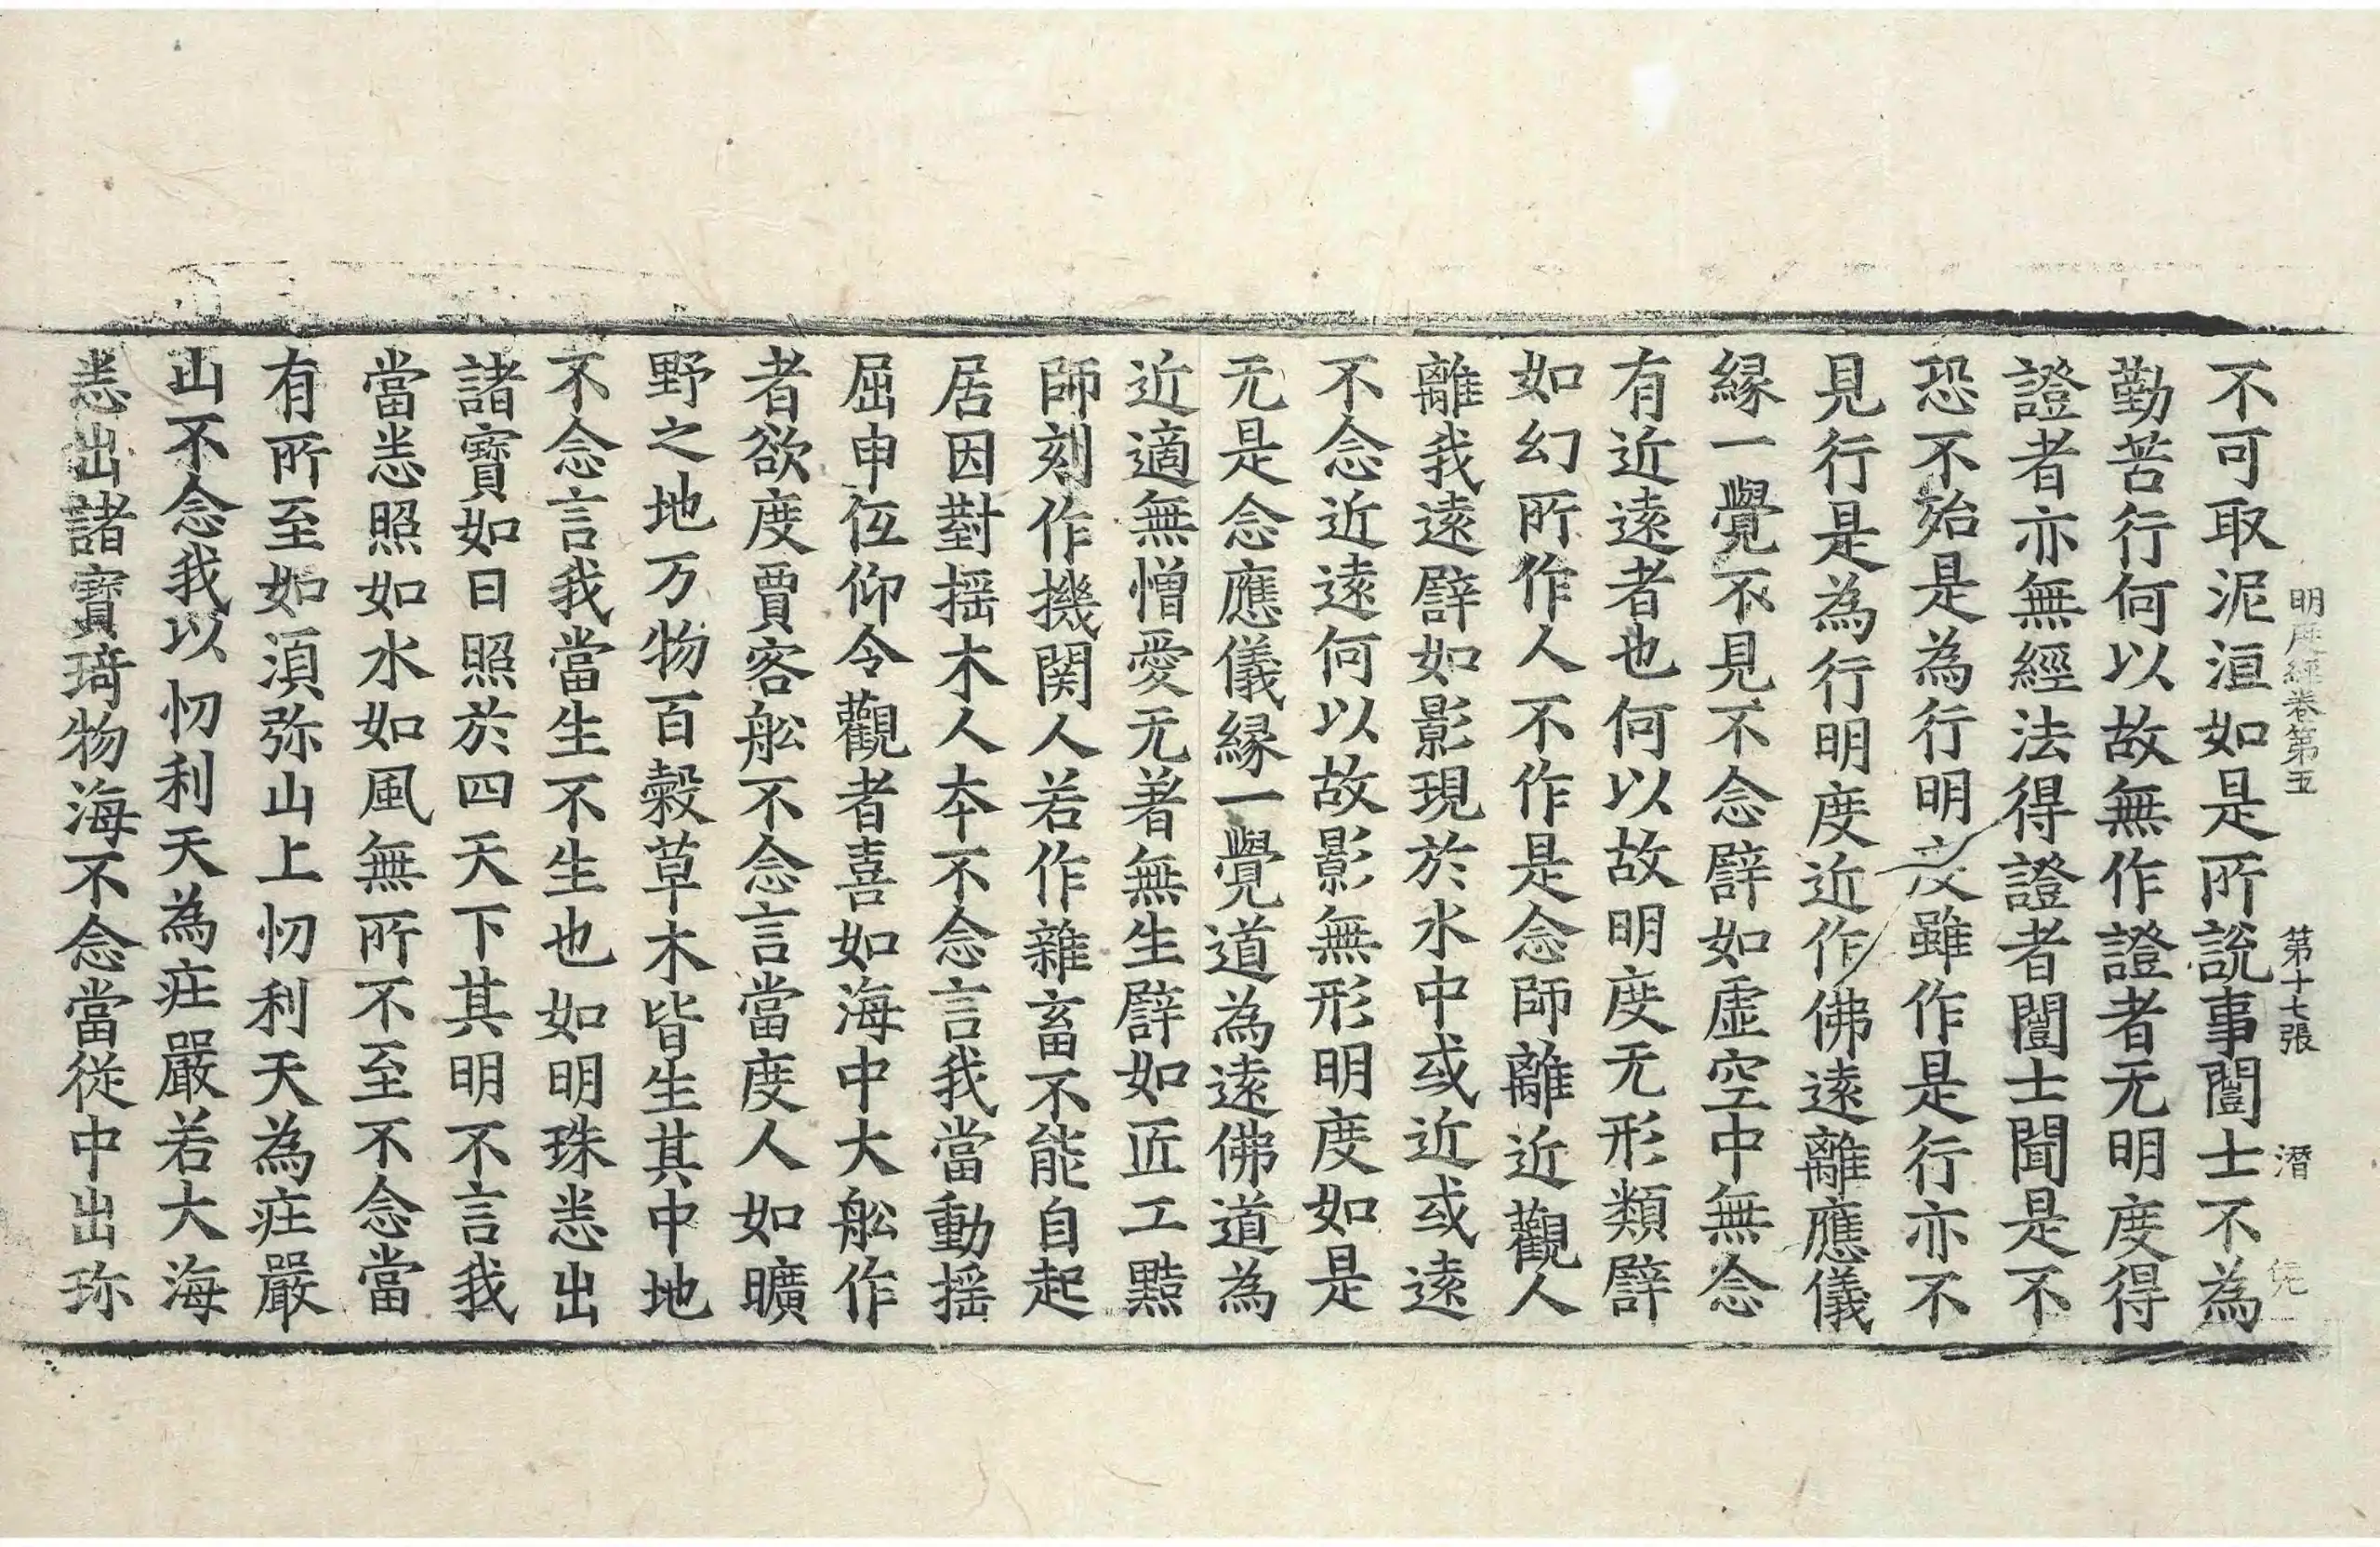 明度經卷第五　第十七張　潛
不可取泥洹如是所說事闓士不為
勤苦行何以故無作證者无明度得
證者亦無經法得證者闓士聞是不
恐不殆是為行明度雖作是行亦不
見行是為行明度近作佛遠離應儀
緣一覺不見不念譬如虛空中無念
有近遠者也何以故明度无形類譬
如幻所作人不作是念師離近觀人
離我遠譬如影現於水中或近或遠
不念近遠何以故影無形明度如是
无是念應儀緣一覺道為遠佛道為
近適無憎愛无著無生譬如匠工黠
師刻作機関人若作雜畜不能自起
居因對搖木人本不念言我當動搖
屈申低仰令觀者喜如海中大舩作
者欲度賈客舩不念言當度人如曠
野之地万物百穀草木皆生其中地
不念言我當生不生也如明珠悉出
諸寶如日照於四天下其明不言我
當悉照如水如風無所不至不念當
有所至如須弥山上忉利天為莊嚴
山不念我以忉利天為莊嚴若大海
悉出諸寶琦物海不念當從中出珎